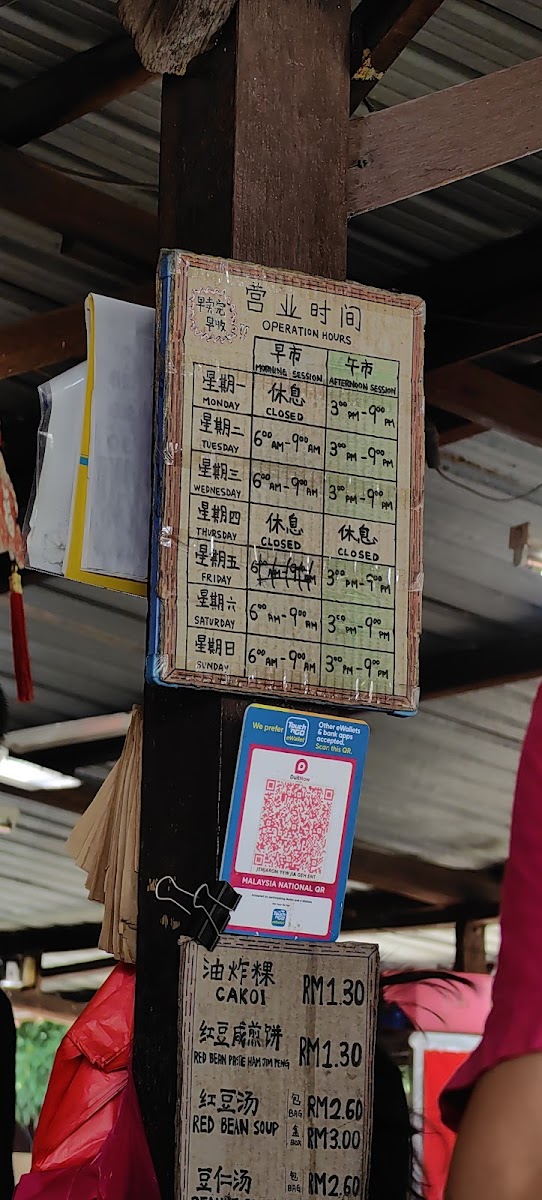 早卖完
早收
营业时间
OPERATION HOURS
早市
MORNING SESSION
午市
AFTERNOON SESSION
星期一
MONDAY
休息
CLOSED
3⁰⁰ PM-9⁰⁰ PM
星期二
TUESDAY
6⁰⁰ AM-9⁰⁰ AM
3⁰⁰ PM-9⁰⁰ PM
星期三
WEDNESDAY
6⁰⁰ AM-9⁰⁰ AM
3⁰⁰ PM-9⁰⁰ PM
星期四
THURSDAY
休息
CLOSED
休息
CLOSED
星期五
FRIDAY
6⁰⁰ AM-9⁰⁰ AM
3⁰⁰ PM-9⁰⁰ PM
星期六
SATURDAY
6⁰⁰ AM-9⁰⁰ AM
3⁰⁰ PM-9⁰⁰ PM
星期日
SUNDAY
6⁰⁰ AM-9⁰⁰ AM
3⁰⁰ PM-9⁰⁰ PM
We prefer Touch 'n GO eWallet
Other eWallets
& bank apps
accepted.
Scan this QR.
DuitNow
MALAYSIA NATIONAL QR
油炸粿
CAKOI
RM1.30
红豆咸煎饼
RED BEAN PASTE HAM JIM PENG
RM1.30
红豆汤
RED BEAN SOUP
包 BAG RM2.60
盒 BOX RM3.00
豆仁汤
包 BAG RM2.60